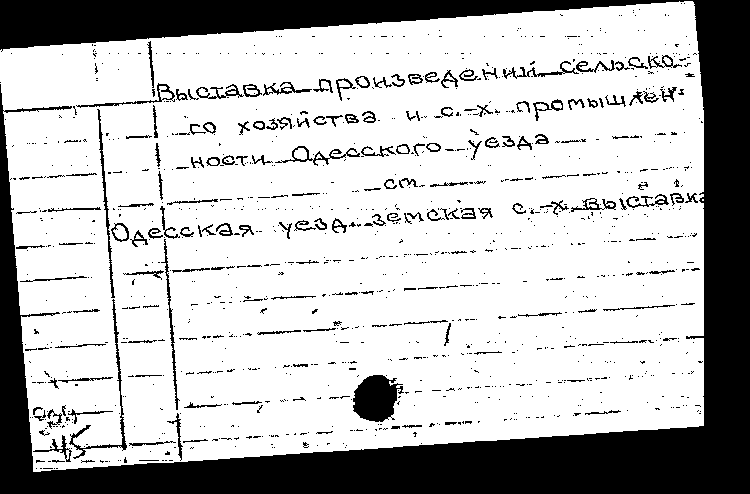 Выставка произведений сельско-
го хозяйства и с.-х. промышлен-
ности Одесского уезда
см
Одесская уезд. земская с.-х. выставка
45